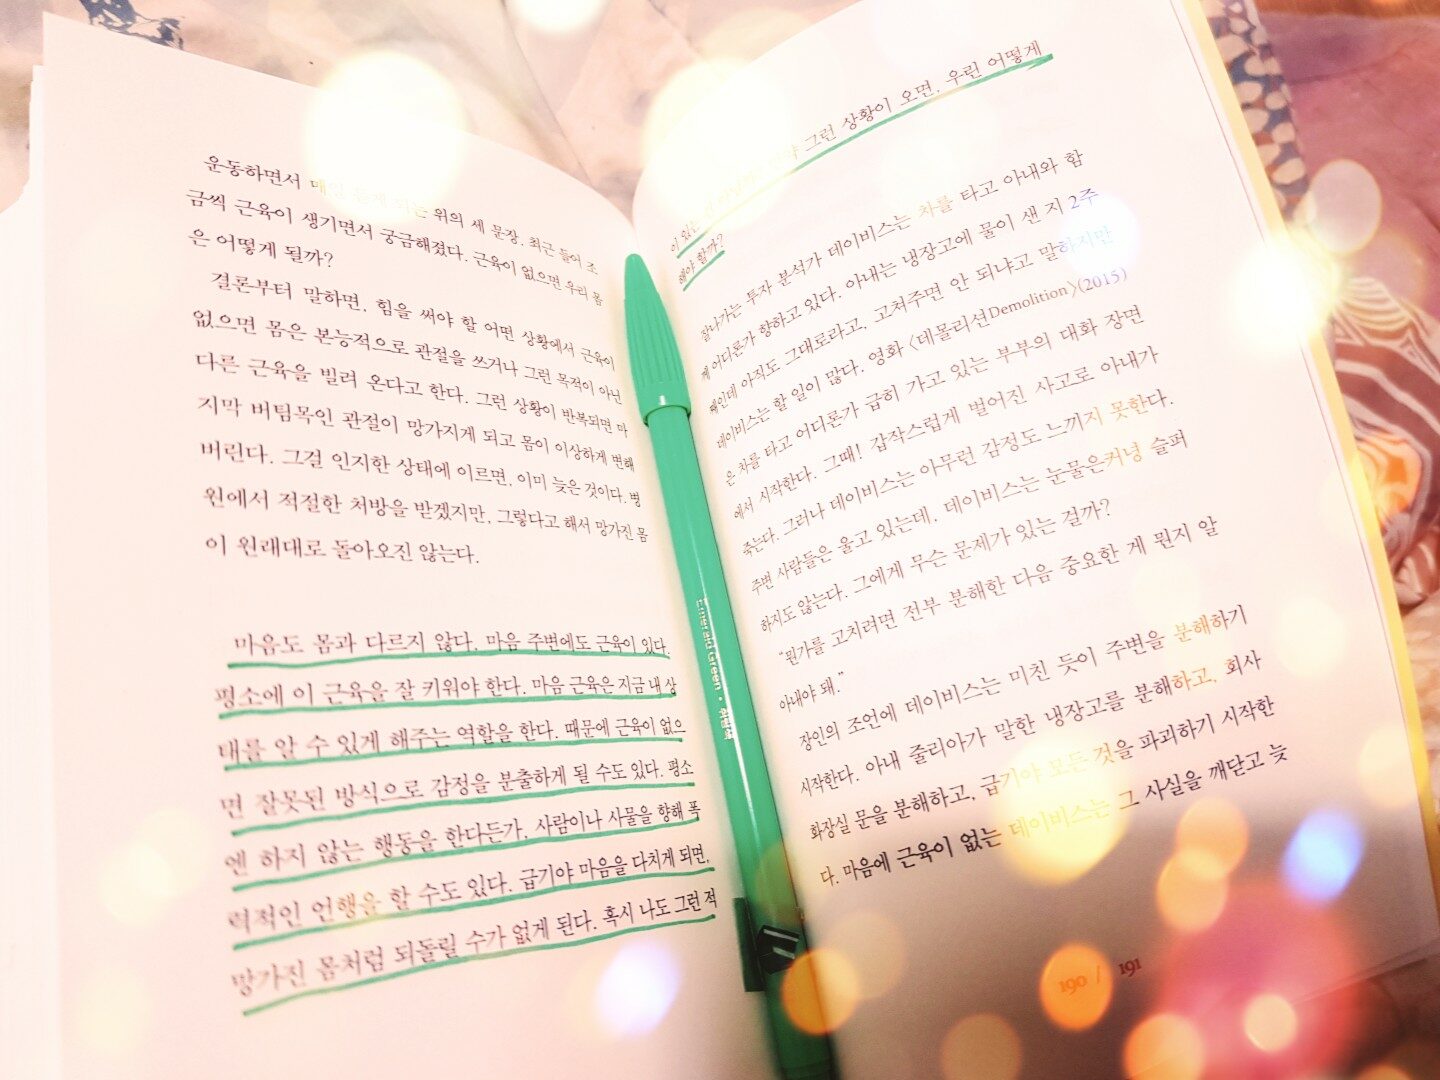 운동하면서 매일 듣게 되는 위의 세 문장. 최근 들어 조
금씩 근육이 생기면서 궁금해졌다. 근육이 없으면 우리 몸
은 어떻게 될까?
결론부터 말하면, 힘을 써야 할 어떤 상황에서 근육이
없으면 몸은 본능적으로 관절을 쓰거나 그런 목적이 아닌
다른 근육을 빌려 온다고 한다. 그런 상황이 반복되면 마
지막 버팀목인 관절이 망가지게 되고 몸이 이상하게 변해
버린다. 그걸 인지한 상태에 이르면, 이미 늦은 것이다. 병
원에서 적절한 처방을 받겠지만, 그렇다고 해서 망가진 몸
이 원래대로 돌아오진 않는다.
마음도 몸과 다르지 않다. 마음 주변에도 근육이 있다.
평소에 이 근육을 잘 키워야 한다. 마음 근육은 지금 내 상
태를 알 수 있게 해주는 역할을 한다. 때문에 근육이 없으
면 잘못된 방식으로 감정을 분출하게 될 수도 있다. 평소
엔 하지 않는 행동을 한다든가, 사람이나 사물을 향해 폭
력적인 언행을 할 수도 있다. 급기야 마음을 다치게 되면,
망가진 몸처럼 되돌릴 수가 없게 된다. 혹시 나도 그런 적
이 있는 그런 상황이 오면, 우린 어떻게
해야 할까?
잘나가는 투자 분석가 데이비스는 차를 타고 아내와 함
께 어디론가 향하고 있다. 아내는 냉장고에 물이 샌 지 2주
째인데 아직도 그대로라고, 고쳐주면 안 되냐고 말하지만
데이비스는 할 일이 많다. 영화 〈데몰리션Demolition〉(2015)
은 차를 타고 어디론가 급히 가고 있는 부부의 대화 장면
에서 시작한다. 그때! 갑작스럽게 벌어진 사고로 아내가
죽는다. 그러나 데이비스는 아무런 감정도 느끼지 못한다.
주변 사람들은 울고 있는데, 데이비스는 눈물은커녕 슬퍼
하지도 않는다. 그에게 무슨 문제가 있는 걸까?
"뭔가를 고치려면 전부 분해한 다음 중요한 게 뭔지 알
아내야 돼."
장인의 조언에 데이비스는 미친 듯이 주변을 분해하기
시작한다. 아내 줄리아가 말한 냉장고를 분해하고, 회사
화장실 문을 분해하고, 급기야 모든 것을 파괴하기 시작한
다. 마음에 근육이 없는 데이비스는 그 사실을 깨닫고 늦
190 / 191
Emerald Green